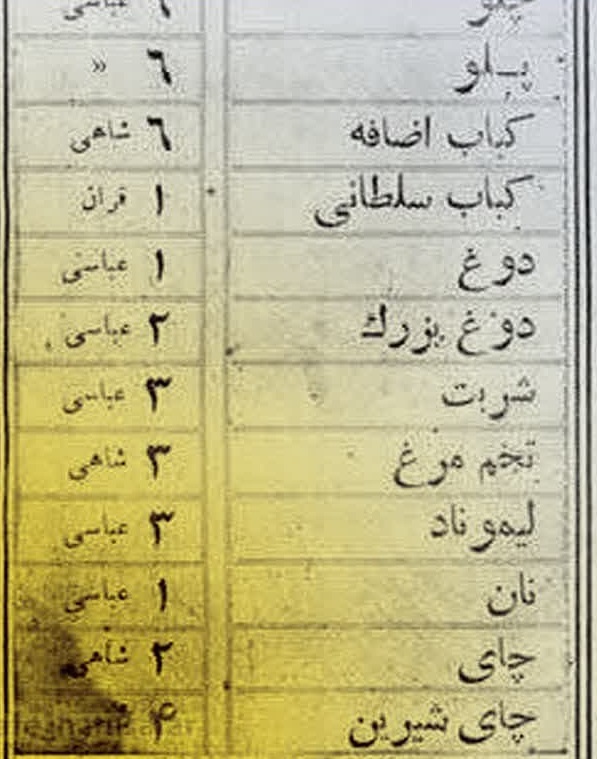 چلو ٦ عباسی
پلو ٦ »
کباب اضافه ٦ شاهی
کباب سلطانی ١ قران
دوغ ١ عباسی
دوغ بزرك ٢ عباسی
شربت ٣ عباسی
تخم مرغ ٣ شاهی
لیموناد ٣ عباسی
نان ١ عباسی
چای ٢ شاهی
چای شیرین ۴